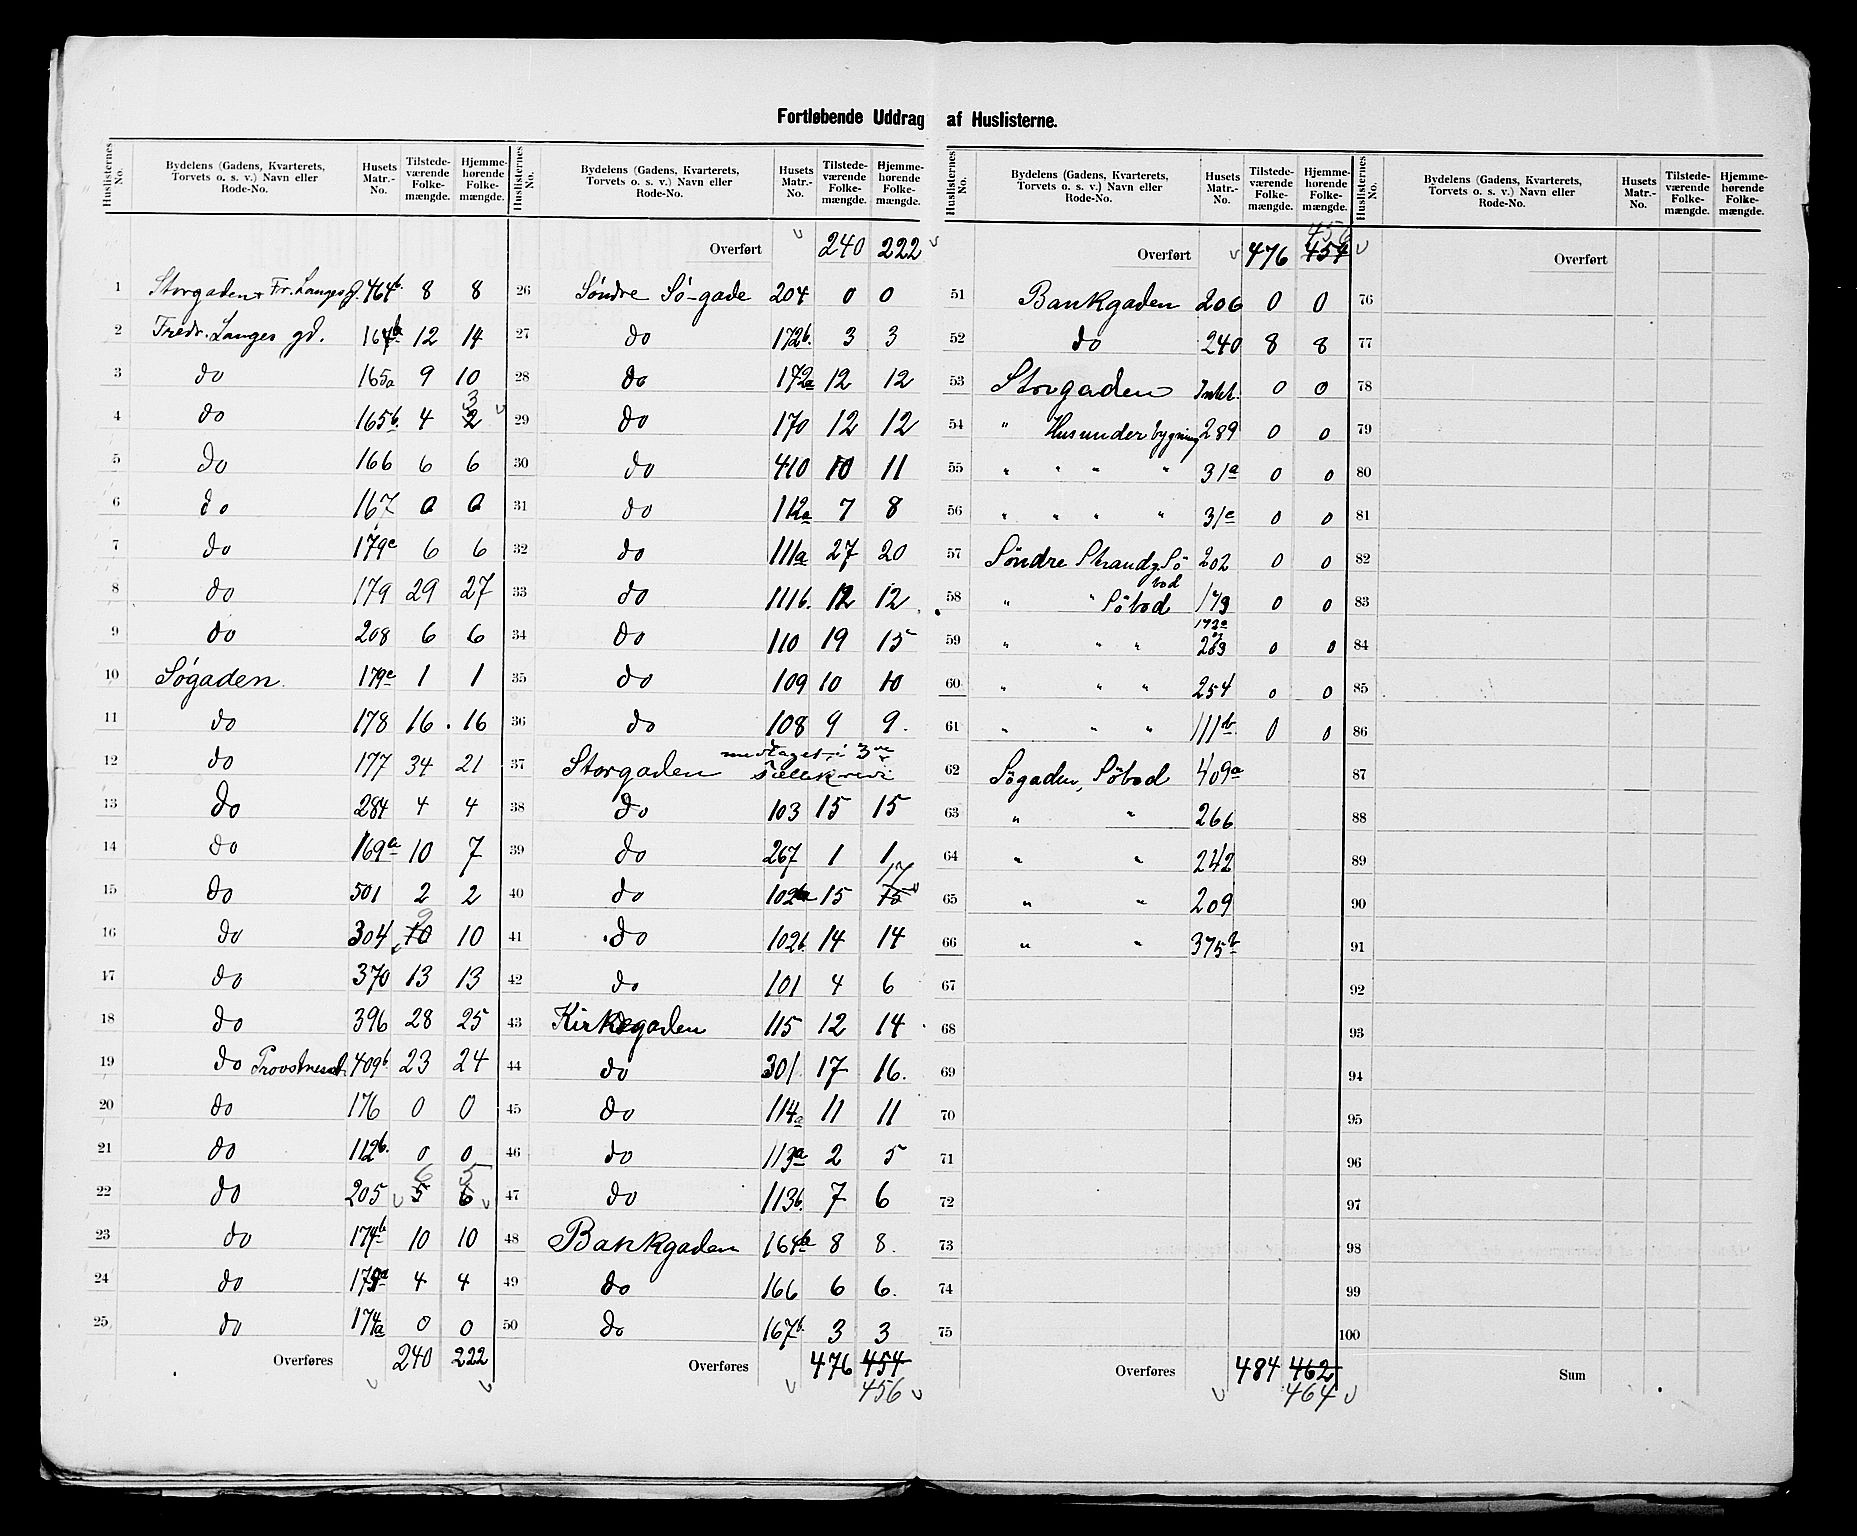 Fortløbende Uddrag af Huslisterne.
Huslisternes No. Bydelens (Gadens, Kvarterets, Torvets o. s. v.) Navn eller Rode-No. Husets Matr.-No. Tilstede-værende Folke-mængde. Hjemme-hørende Folke-mængde.
1 Storgaden & Fr. Langes g. 464b. 8 8
2 Fredr. Langes gd. 12 14
3 do 165a 9 10
4 do 165b. 4 2 3
5 do 166 6 6
6 do 167 0 0
7 do 179e 6 6
8 do 179 29 27
9 do 208 6 6
10 Søgaden. 179e 1 1
11 do 178 16 . 16
12 do 177 34 21
13 do 284 4 4
14 do 169a 10 7
15 do 501 2 2
16 do 304 10 9 10
17 do 370 13 13
18 do 396 28 25
19 do 409b 23 24
20 do 176 0 0
21 do 112b. 0 0
22 do 205 5 6 6 5
23 do 174b 10 10
24 do 4 4
25 do 174a 0 0
Overføres 240 222
Huslisternes No. Bydelens (Gadens, Kvarterets, Torvets o. s. v.) Navn eller Rode-No. Husets Matr.-No. Tilstede-værende Folke-mængde. Hjemme-hørende Folke-mængde.
Overført 240 222
26 Söndre Sö-gade 204 0 0
27 do 172b. 3 3
28 do 172a 12 12
29 do 170 12 12
30 do 410 10 11
31 do 112a 7 8
32 do 111a 27 20
33 do 111b. 12 12
34 do 110 19 15
35 do 109 10 10
36 do 108 9 9.
37 Storgaden medtaget i 3die
38 do 103 15 15
39 do 267 1 1
40 do 15 15 17
41 do 102b. 14 14
42 do 101 4 6
43 Kirkegaden 115 12 14
44 do 301. 17 16.
45 do 114a 11 11
46 do 113a 2 5
47 do 113b. 7 6
48 Bankgaden 8 8.
49 do 166 6 6.
50 do 167b. 3 3
Overføres 476 454
456
Huslisternes No. Bydelens (Gadens, Kvarterets, Torvets o. s. v.) Navn eller Rode-No. Husets Matr.-No. Tilstede-værende Folke-mængde. Hjemme-hørende Folke-mængde.
456
Overført 476 454
51 Bankgaden 206 0 0
52 do 240 8 8
53 Storgaden 0 0
54 " Hus under bygning 289 0 0
55 " " " " 31a 0 0
56 " " " " 31e 0 0
57 Söndre Strandg. Sö 202 0 0
bod
58 " " Söbod 0 0
59 " " " 0 0
60 " " " 254 0 0
61 " " " 111b. 0 0
62 Søgaden, Söbod 409a
63 " " 266
64 " " 242
65 " " 209
66 " " 375b
67
68
69
70
71
72
73
74
75
Overføres 484 462
464
Huslisternes No. Bydelens (Gadens, Kvarterets, Torvets o. s. v.) Navn eller Rode-No. Husets Matr.-No. Tilstede-værende Folke-mængde. Hjemme-hørende Folke-mængde.
Overført
76
77
78
79
80
81
82
83
84
85
86
87
88
89
90
91
92
93
94
95
96
97
98
99
100
Sum